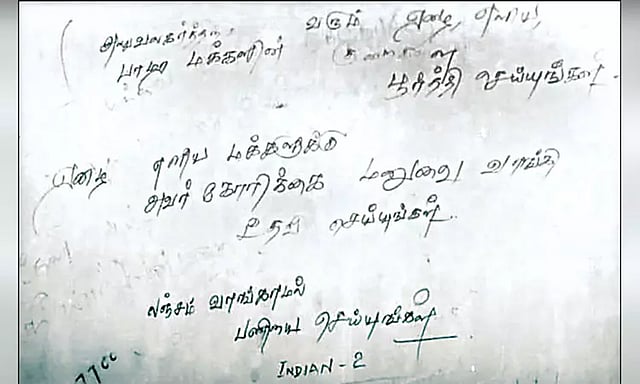 அலுவலகத்தக்கு வரும் ஏழை, எளிய,
பாமர மக்களின் குறைகளை
பூர்த்தி செய்யுங்கள்.
ஏழை எளிய மக்களுக்கு
அவர் கோரிக்கை மனுவை வாங்கி
உதவி செய்யுங்கள்.
லஞ்சம் வாங்காமல்
பணியை செய்யுங்கள்
INDIAN - 2